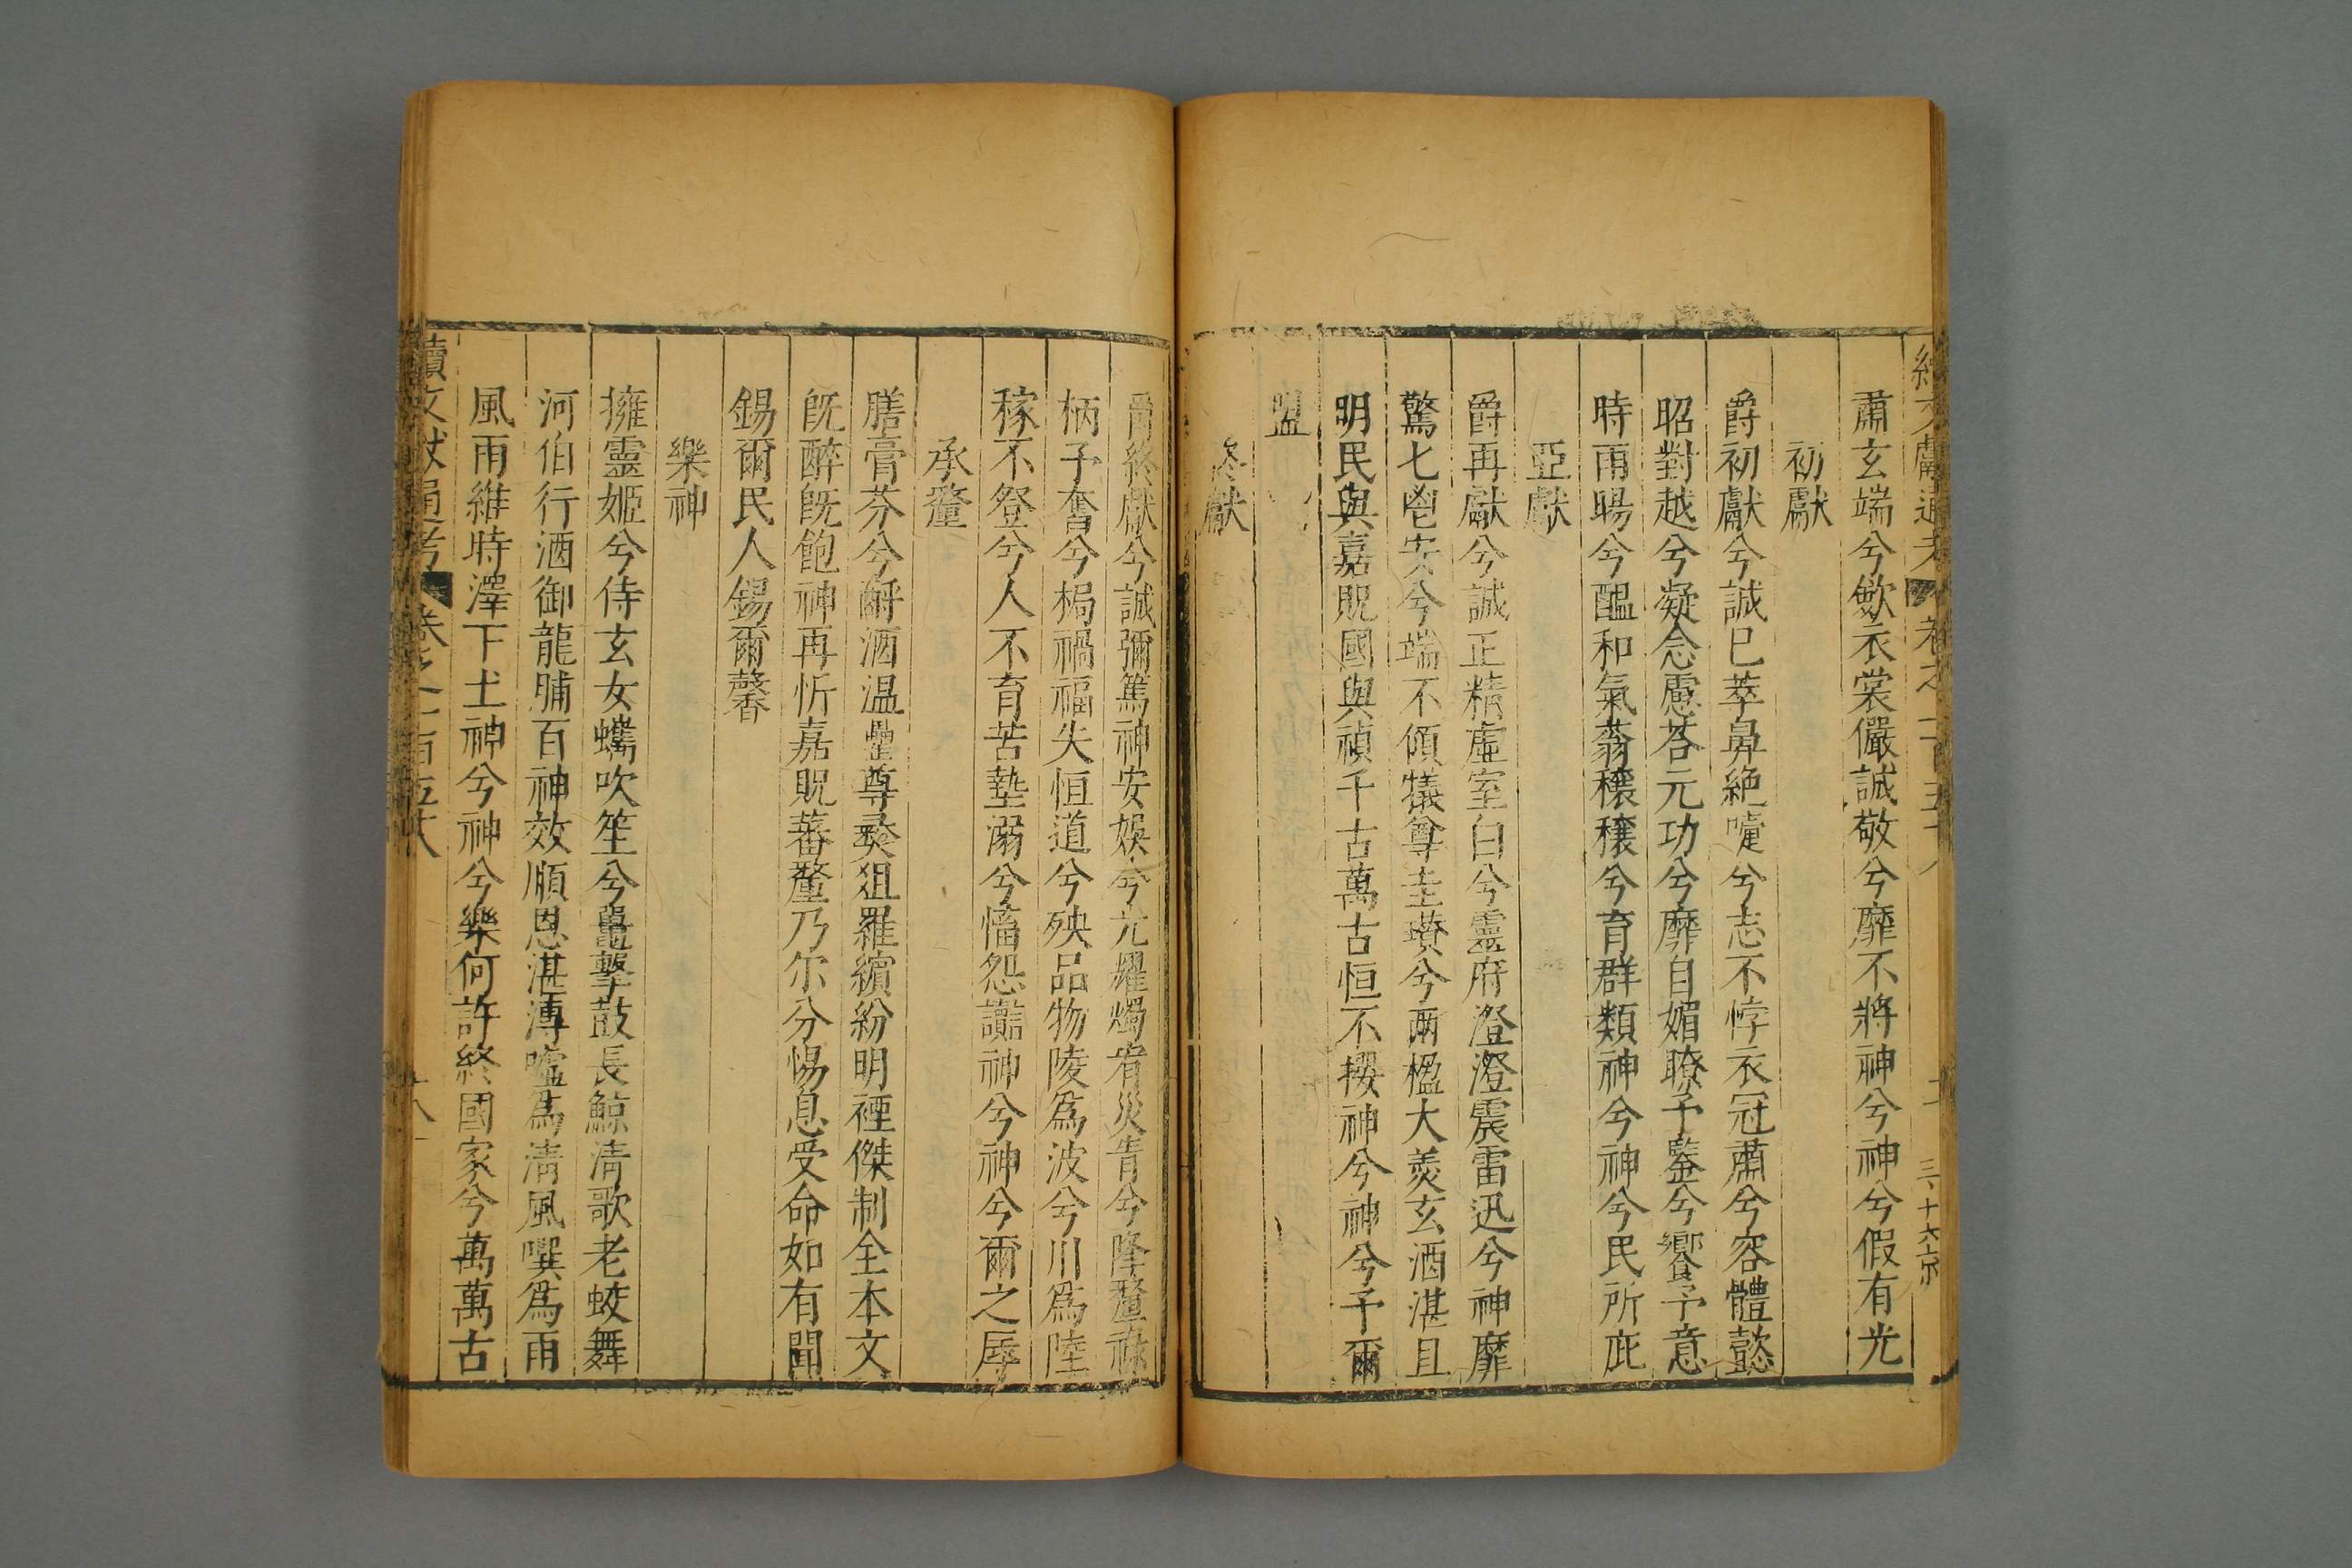 肅玄端兮斂衣裳儼誠敬兮靡不將神兮神兮假有光
初獻
爵初獻兮誠已萃鼻絶嚏兮志不悖衣冠肅兮容體懿
昭對越兮凝念慮荅元功兮靡自媚瞭予鑒兮饗予意
時雨暘兮醖和氣蓊穰穰兮育群類神兮神兮民所庇
亞獻
爵再獻兮誠正精虛室白兮靈府澄澄震雷迅兮神靡
驚匕鬯安兮端不傾犧尊圭瓚兮兩楹大羹玄酒湛且
明民與嘉貺國與禎千古萬古恒不摟神兮神兮予爾
盟
終獻
爵終獻兮誠彌篤神安娛兮光耀燭宥災眚兮隆釐祿
柄予奪兮梮禍福失恒道兮殃品物陵爲波兮川爲陸
稼不登兮人不育苦墊溺兮慉怨讟神兮神兮爾之辱
承釐
膳膏芬兮酹酒温罍尊彝俎羅繽紛明禋傑制全本文
旣醉旣飽神再忻嘉貺蕃釐乃尔分惕息受命如有聞
錫爾民人錫爾馨
樂神
擁靈姬兮侍玄女蠵吹笙兮鼉擊鼓長鯨清歌老蛟舞
河伯行酒御龍脯百神效順恩湛溥噓爲淸風噀爲雨
風雨維時澤下土神兮神兮樂何許終國家兮萬萬古
續文獻通考 卷之一百五十八 十八